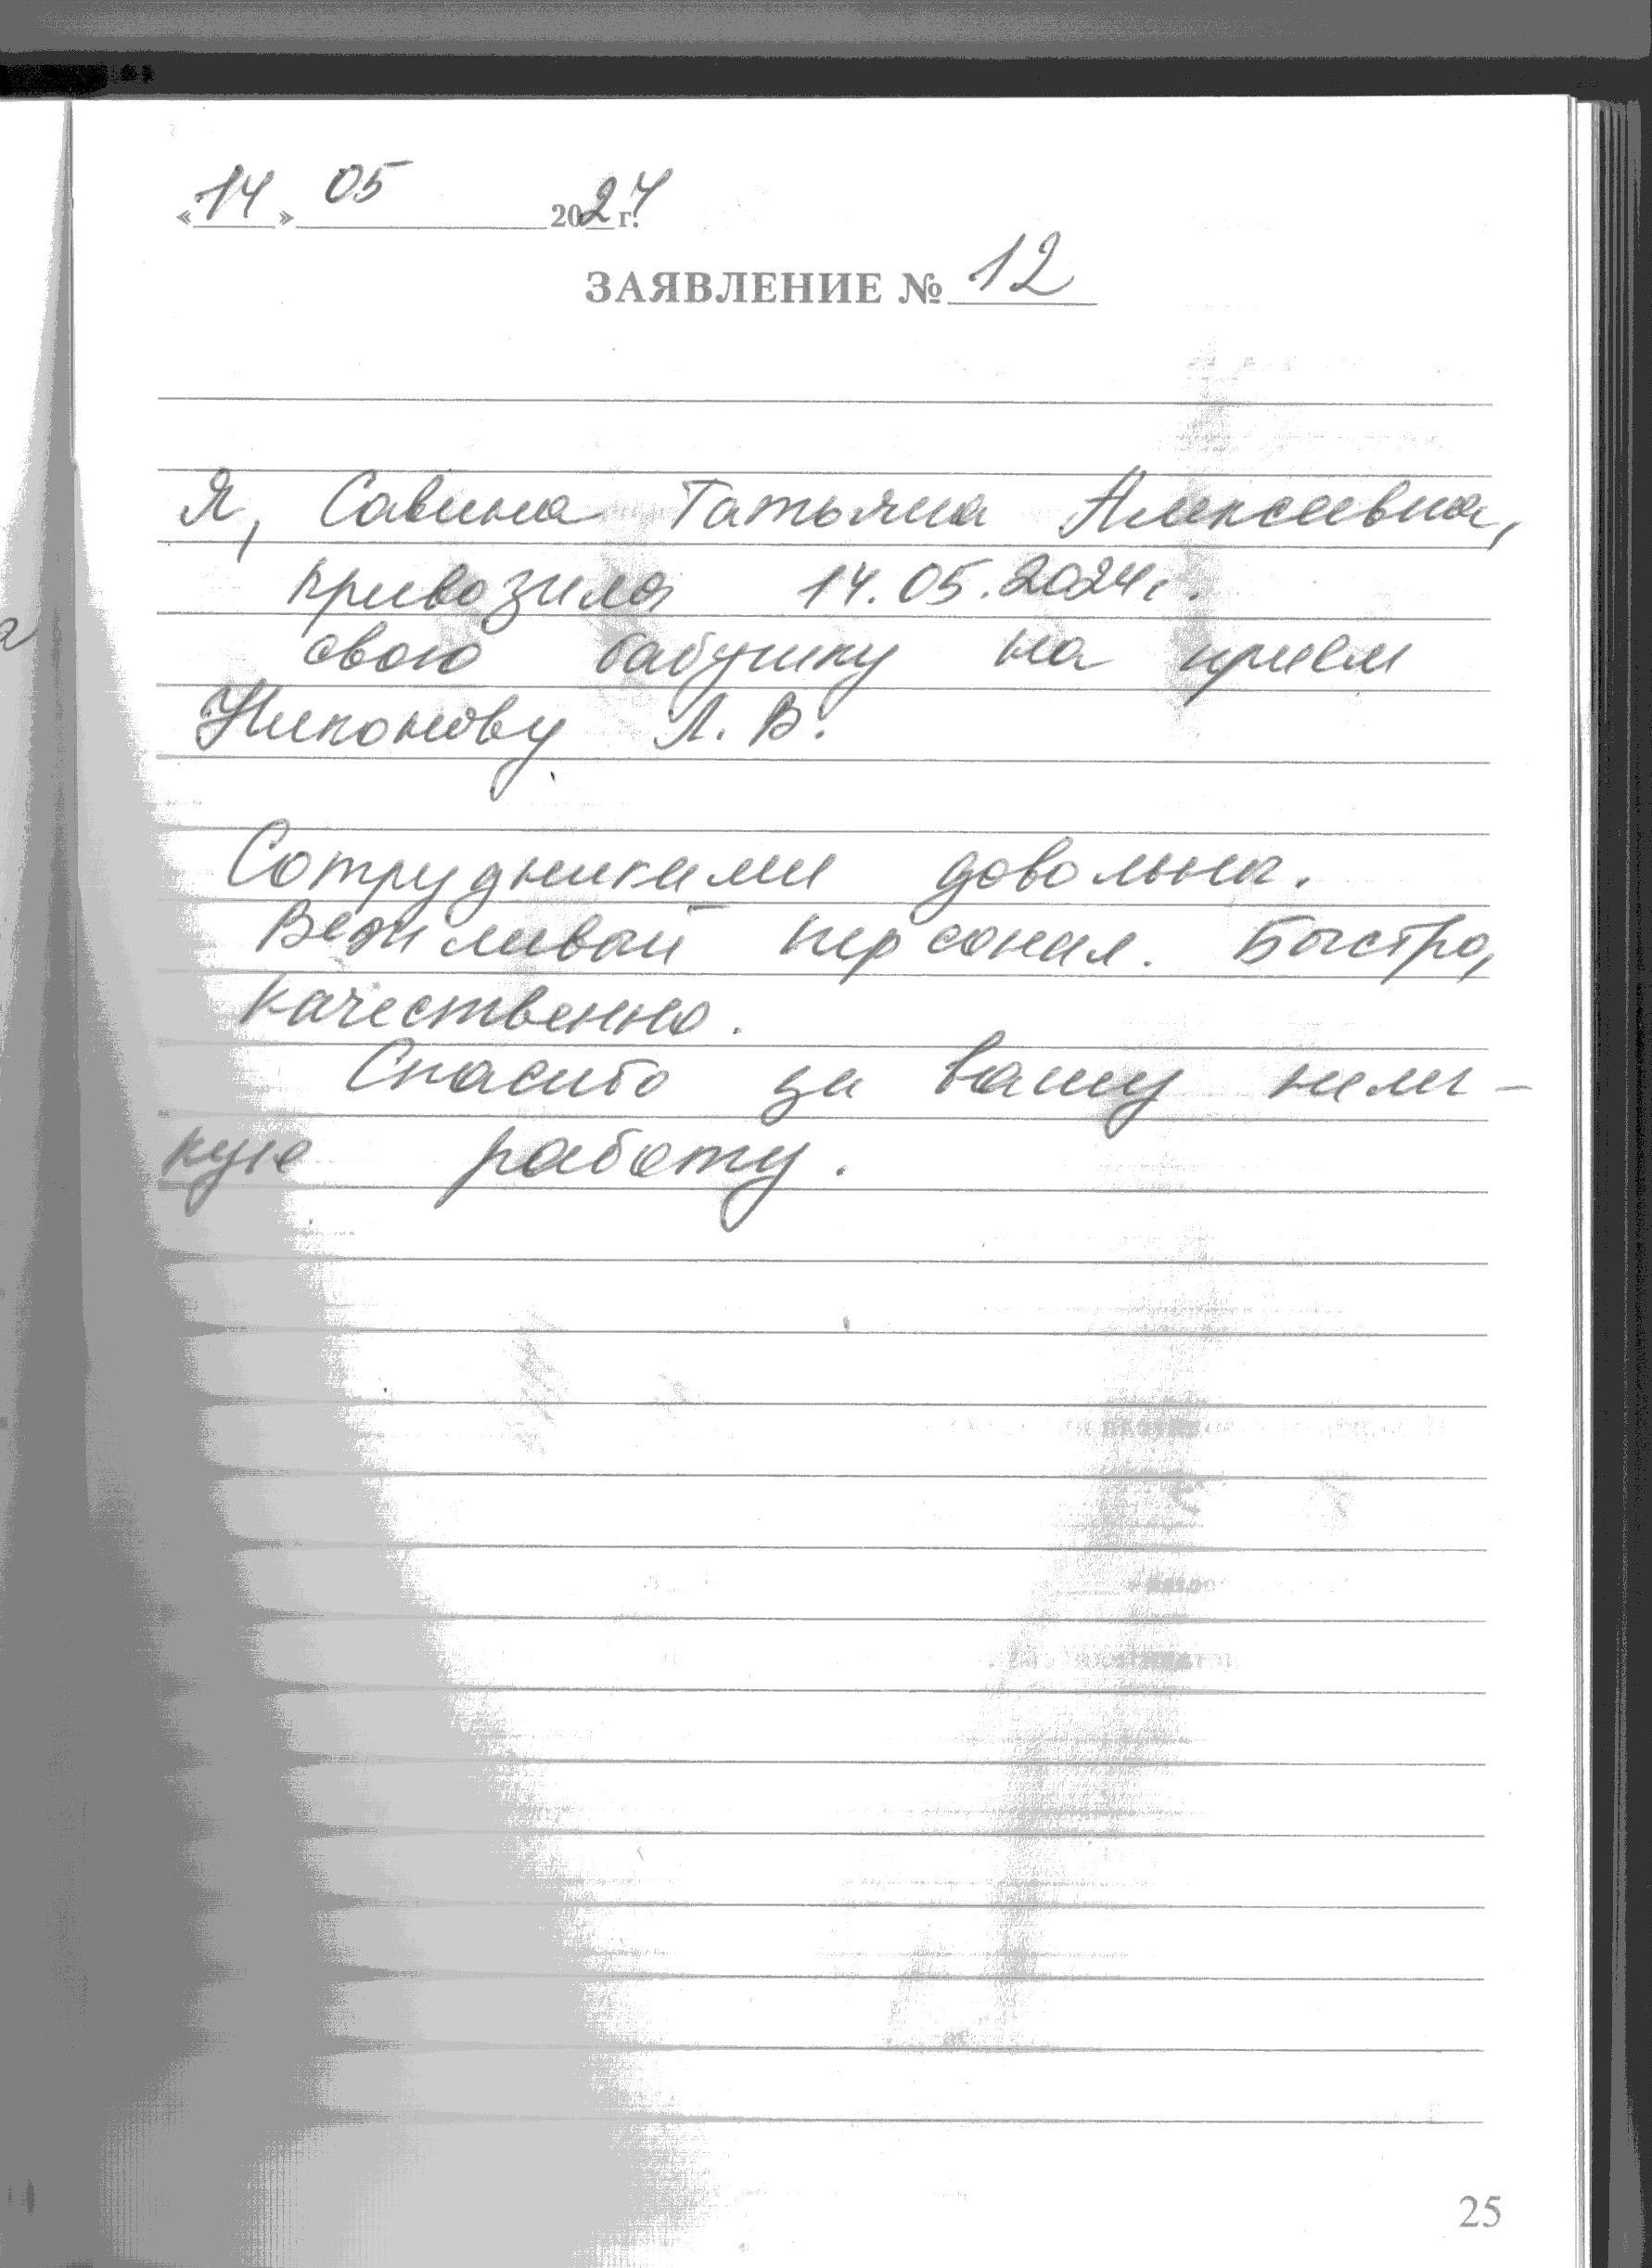 «14» 05 2024 г.
ЗАЯВЛЕНИЕ № 12
Я, Савина Татьяна Алексеевна,
привозила 14.05.2024г.
свою бабушку на прием
Никонову Л. В.
Сотрудниками довольна.
Вежливый персонал. Быстро,
качественно.
Спасибо за вашу нелег-
кую работу.
25